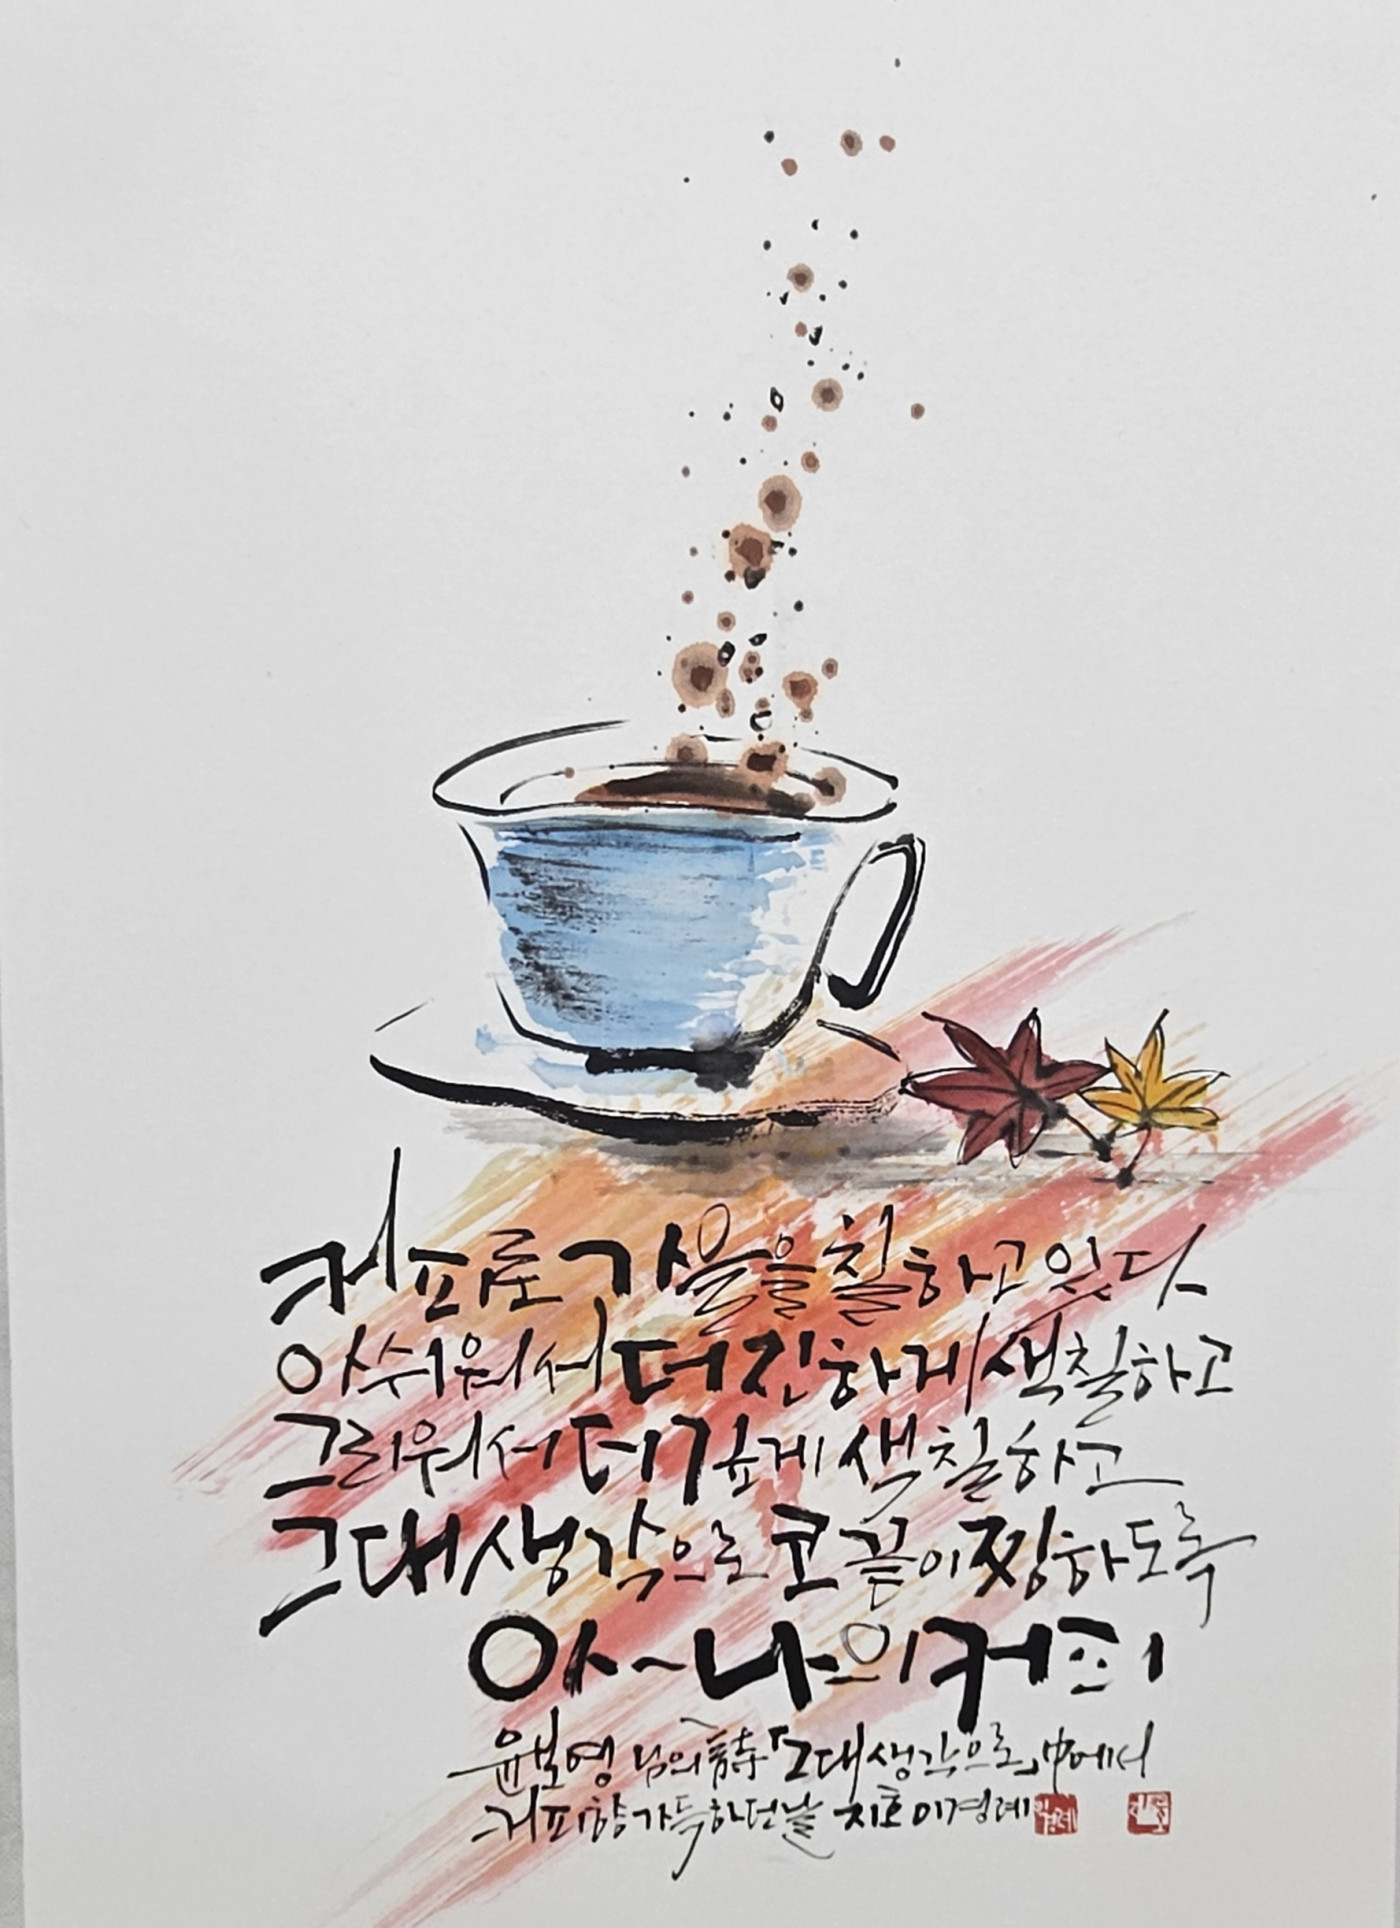 커피로 가을을 칠하고 있다
아쉬워서 더 진하게 색칠하고
그리워서 더 깊게 색칠하고
그대 생각으로 코끝이 찡하도록
아~ 나의 커피
윤보영 님의 詩 「그대 생각으로」 中에서
커피향 가득하던 날 지호 이경례